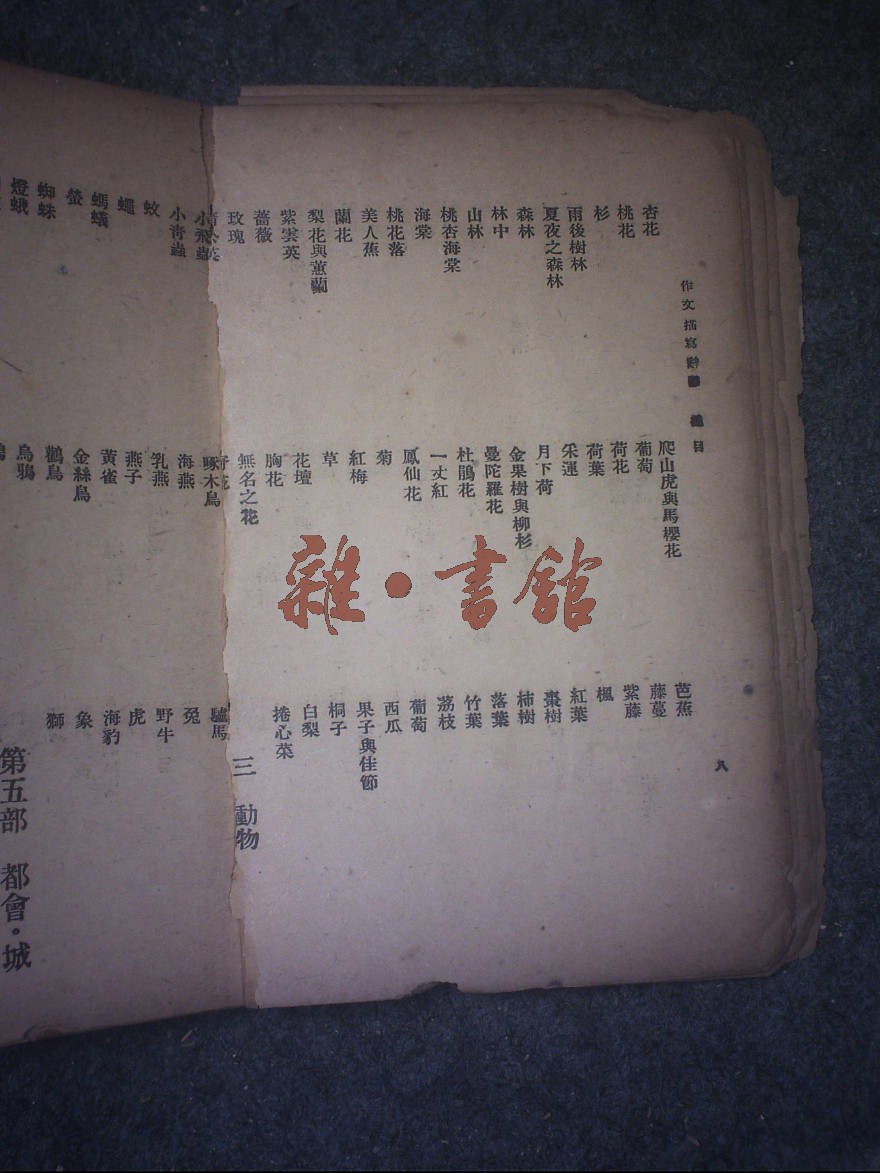 作文描寫辭 總目
八
杏花
桃花
杉
雨後樹林
夏夜之森林
森林
林中
山林
桃杏海棠
海棠
桃花落
美人蕉
蘭花
梨花與蕙蘭
紫雲英
薔薇
玫瑰
爬山虎與馬櫻花
葡萄
荷花
荷葉
采蓮
月下荷
金果樹與柳杉
曼陀羅花
杜鵑花
一丈紅
鳳仙花
菊
紅梅
草
花壇
胸花
無名之花
芭蕉
藤蔓
紫藤
楓
紅葉
棗樹
柿樹
落葉
竹葉
荔枝
葡萄
西瓜
果子與佳節
桐子
白梨
捲心菜
三 動物
小飛蟲
小青蟲
蚊
蠅
螞蟻
螢
蜘蛛
燈蛾
啄木鳥
海燕
乳燕
燕子
黃雀
金絲鳥
鸛鳥
烏鴉
驢馬
兔
野牛
虎
海豹
象
獅
第五部 都會·城
雜·書館